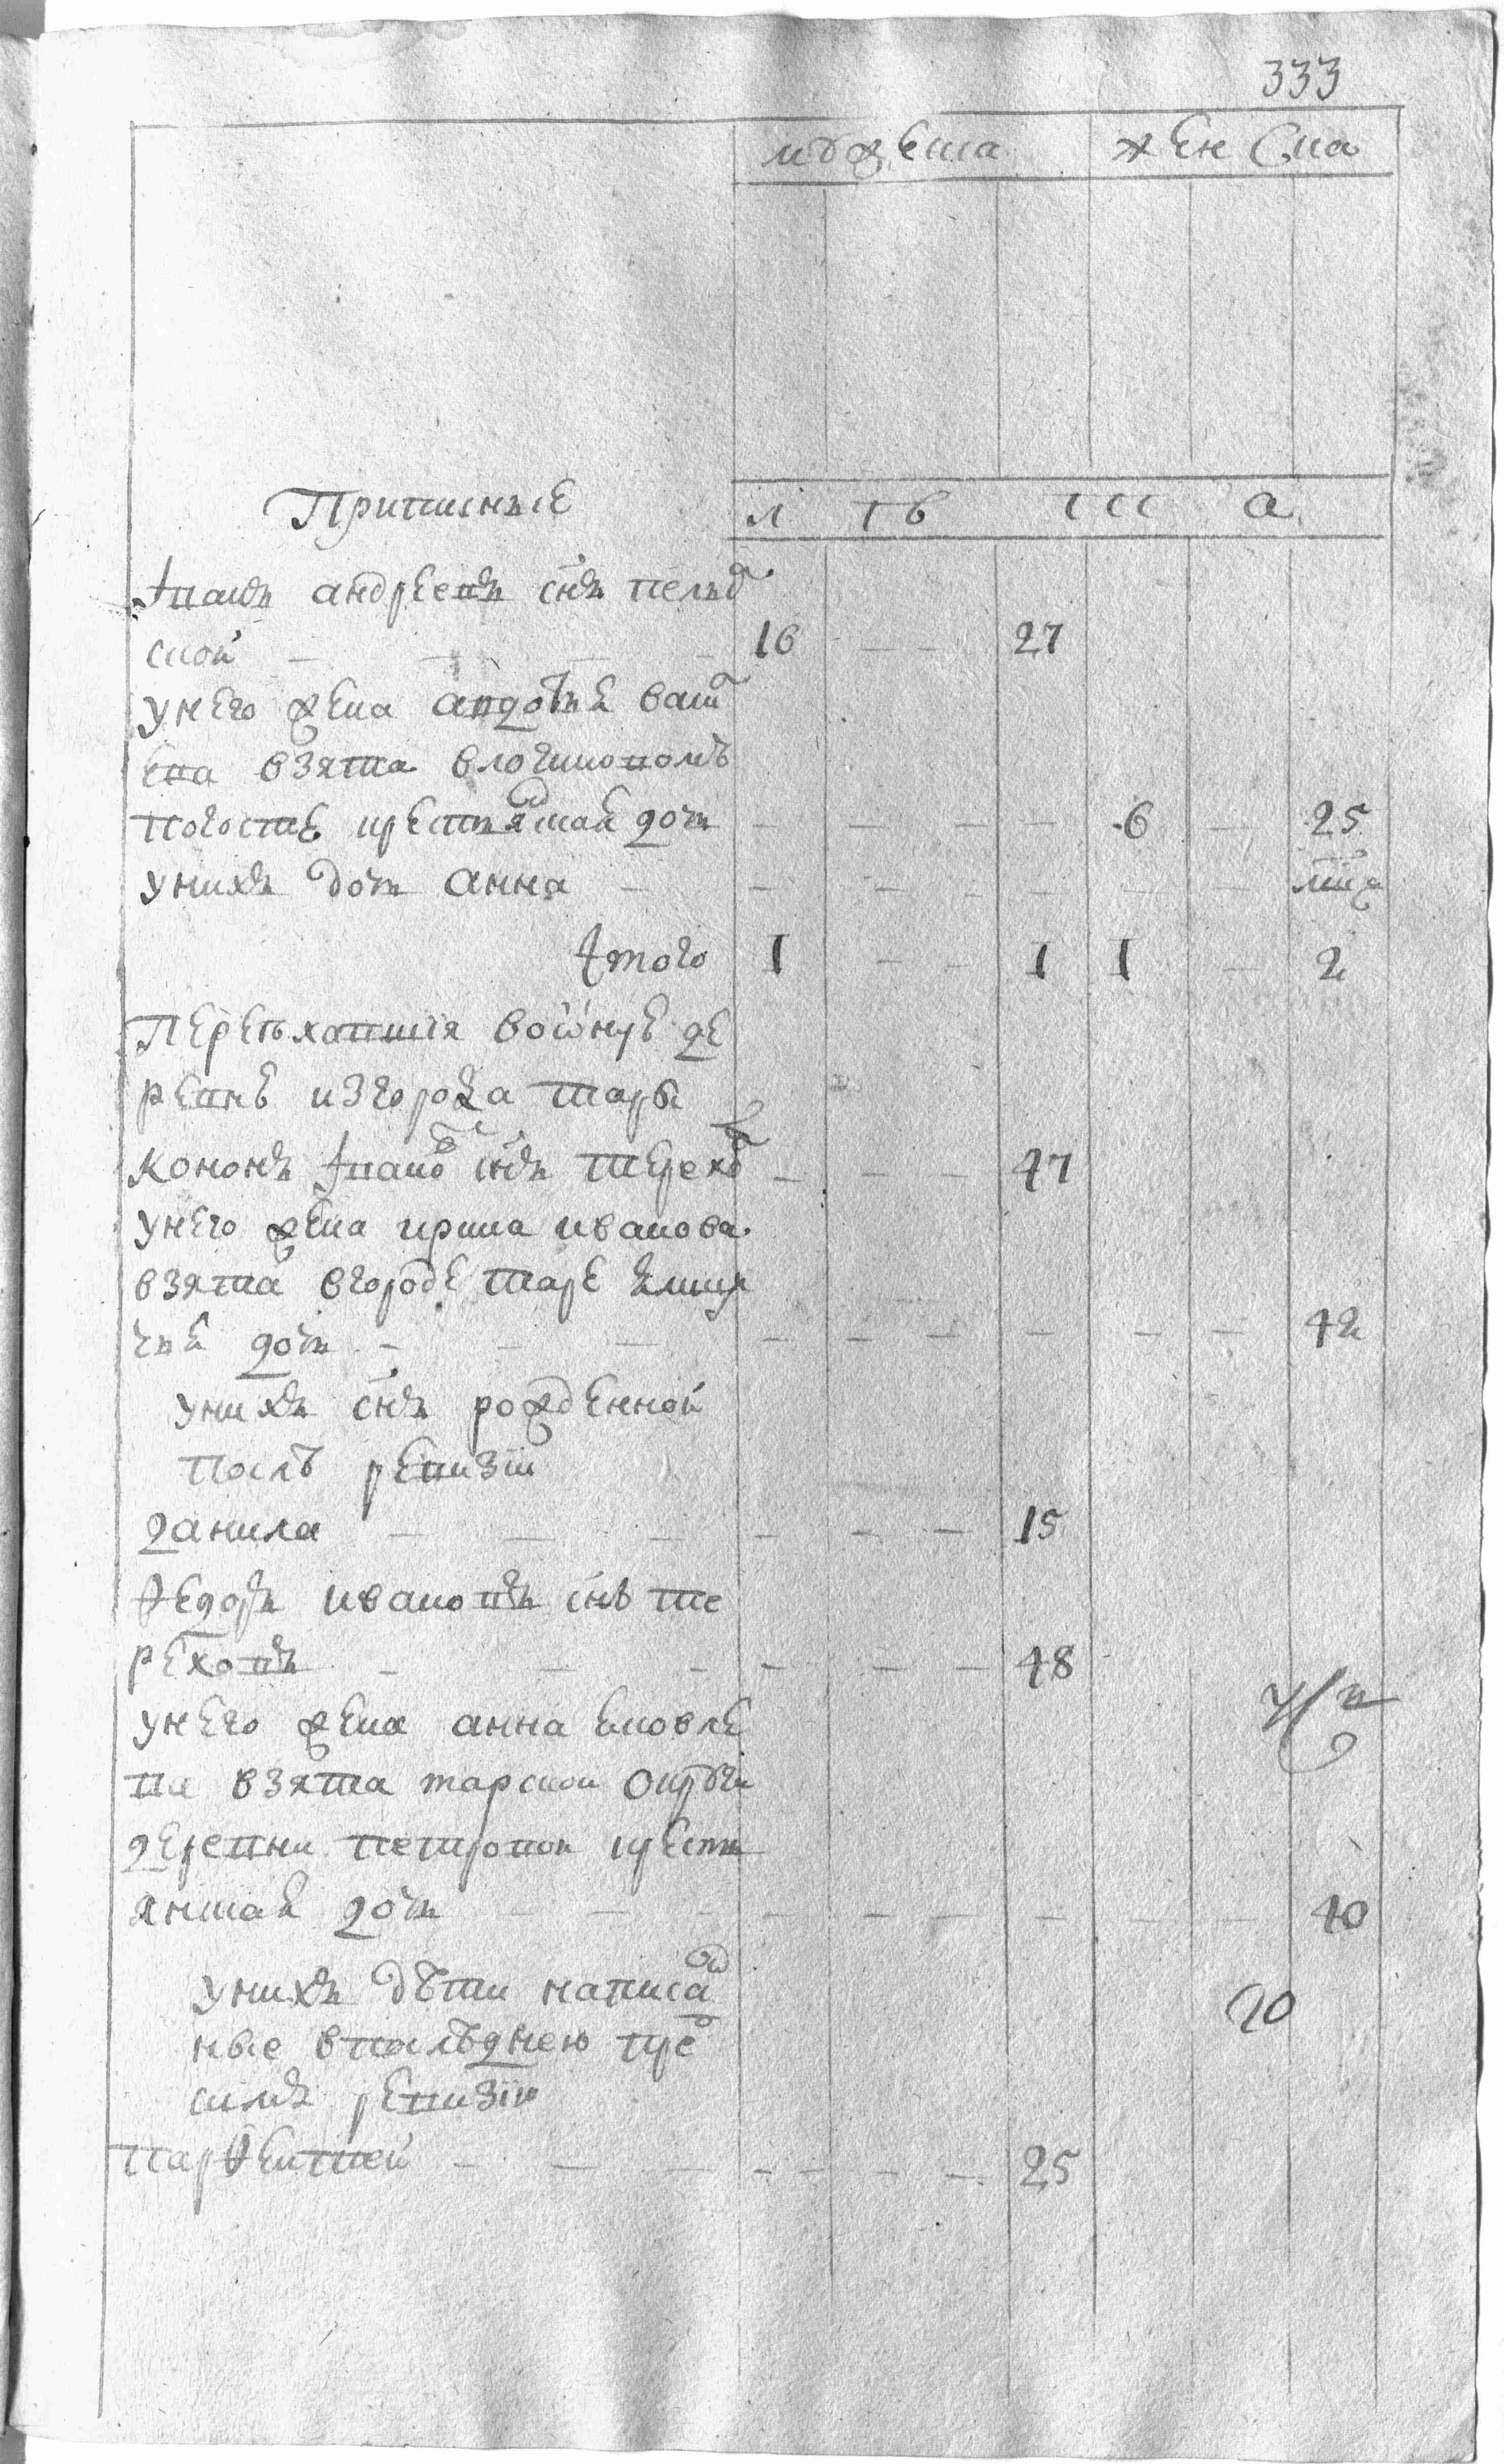 333
мужеска женска
Приписные л ѣ т а
Iванъ андреевъ снъ пелы
ской — — — — 16 — — 27
унего жена авдотья вати
ева взята влогиновомъ
погосте крестьянская дочь — — — — 6 — 25
унихъ дочь анна — — — — — — —
Iтого 1 — — 1 1 — 2
Переехавшия воонуе де
ревню изгорода тары
кононъ Iвановъ снъ терехов — — — 47
унего жена ирина иванова
взята вгороде таре
дочь — — — — — — — — — 42
унихъ снъ рожденной
послѣ ревизiи
данила — — — — — — 15
Ѳедоръ ивановъ снъ те
реховъ — — — — — — 48
унего жена анна яковле
ва взята тарской округи
деревни петровой кресть
янская дочь — — — — — — — — — 40
унихъ дѣти написан
ные впослѣднею пре
симъ ревизiю
20
парѲентей — — — — — — — 25